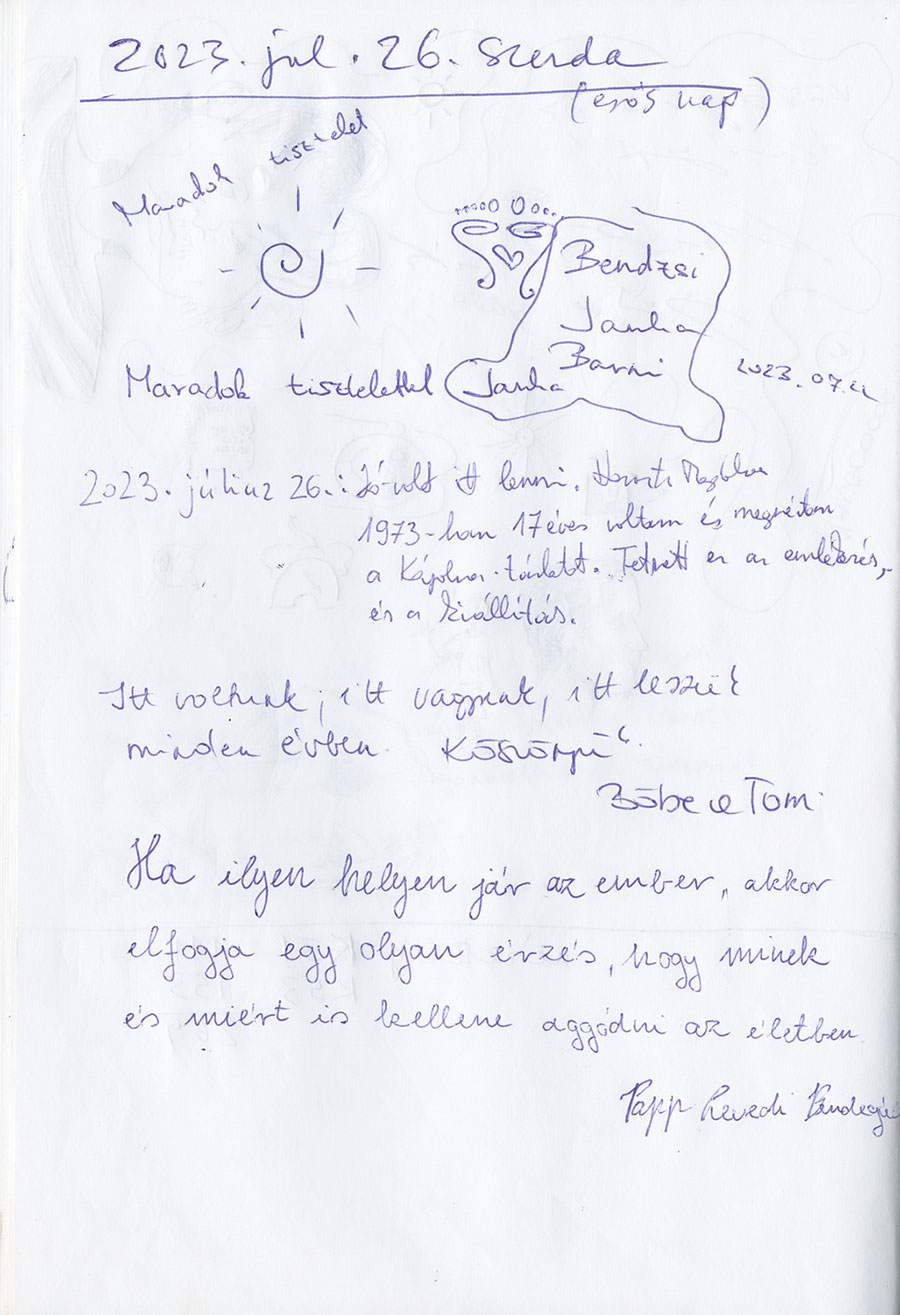 2023. jul. 26. Szerda
(esős nap)
Maradok tisztelet
Bendzsi
Janka
Barni
Maradok tisztelettel Janka
2023.07.
2023. július 26.: Jó volt itt lenni.
1973-ban 17 éves voltam és megnéztem
a Kápolna-tárlatt. Tetszett ez az emlékezés,
és a kiállítás.
Itt voltunk, itt vagyunk, itt leszük
minden évben
Böbe Tomi
Ha ilyen helyen jár az ember, akkor
elfogja egy olyan érzés, hogy minek
és miért is kellene aggódni az életben
Papp Levedi